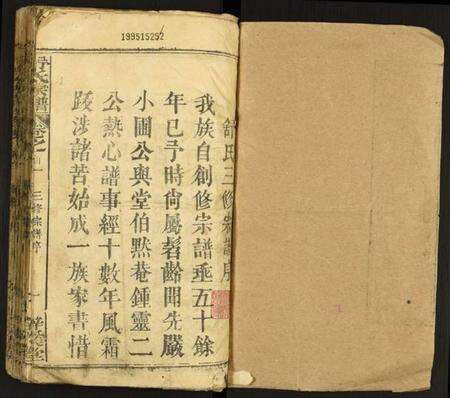 199515252
舒氏三修宗譜序
我族自創修宗譜垂五十餘
年已予時尙屬髫齡聞先嚴
小圃公與堂伯黙菴鍾靈二
公熱心譜事經十數年風霜
跋涉諸苦始成一族家書惜
氏宗譜
三修宗譜序
一